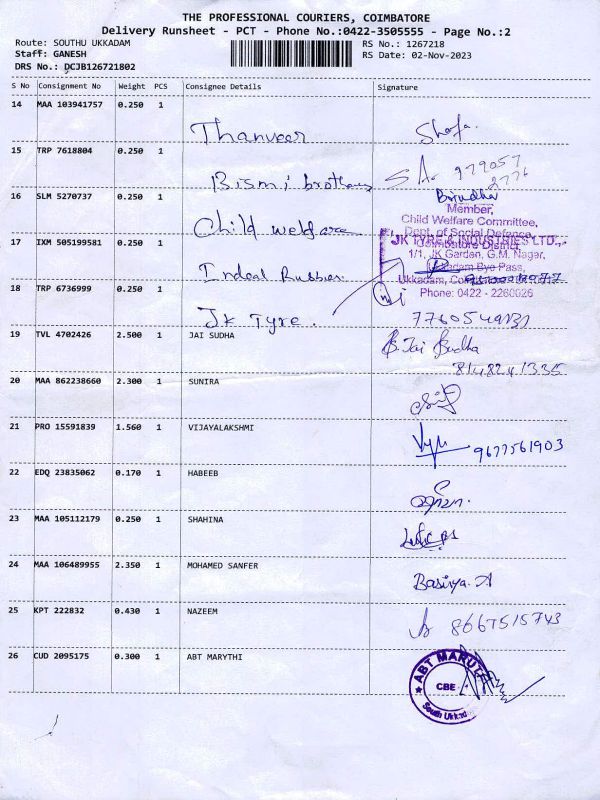 THE PROFESSIONAL COURIERS, COIMBATORE
Delivery Runsheet - PCT - Phone No.:0422-3505555 - Page No.:2
Route: SOUTHU UKKADAM
RS No.: 1267218
Staff: GANESH
RS Date: 02-Nov-2023
DRS No.: DCJB126721802
S No Consignment No Weight PCS Consignee Details Signature
14 MAA 103941757 0.250 1
Thanveer
15 TRP 7618804 0.250 1
S A. 979057
Bismi brothers
16 SLM 5270737 0.250 1
Member,
Child Welfare Committee,
Child welfare
Dept. of Social Defence,
17 IXM 505199581 0.250 1
JK TYRE & INDUSTRIES LTD.,
Coimbatore District
1/1, JK Garden, G.M. Nagar,
Indeal Rubber
Bye Pass,
Ukkadam,
18 TRP 6736999 0.250 1
Phone: 0422 - 2260026
JK Tyre.
19 TVL 4702426 2.500 1 JAI SUDHA
B. Jai Sudha
8148241335
20 MAA 862238660 2.300 1 SUNIRA
21 PRO 15591839 1.560 1 VIJAYALAKSHMI
9677561903
22 EDQ 23835062 0.170 1 HABEEB
23 MAA 105112179 0.250 1 SHAHINA
24 MAA 106489955 2.350 1 MOHAMED SANFER
Basirya. A
25 KPT 222832 0.430 1 NAZEEM
8667515743
26 CUD 2095175 0.300 1 ABT MARYTHI
ABT MARUTI
CBE
South